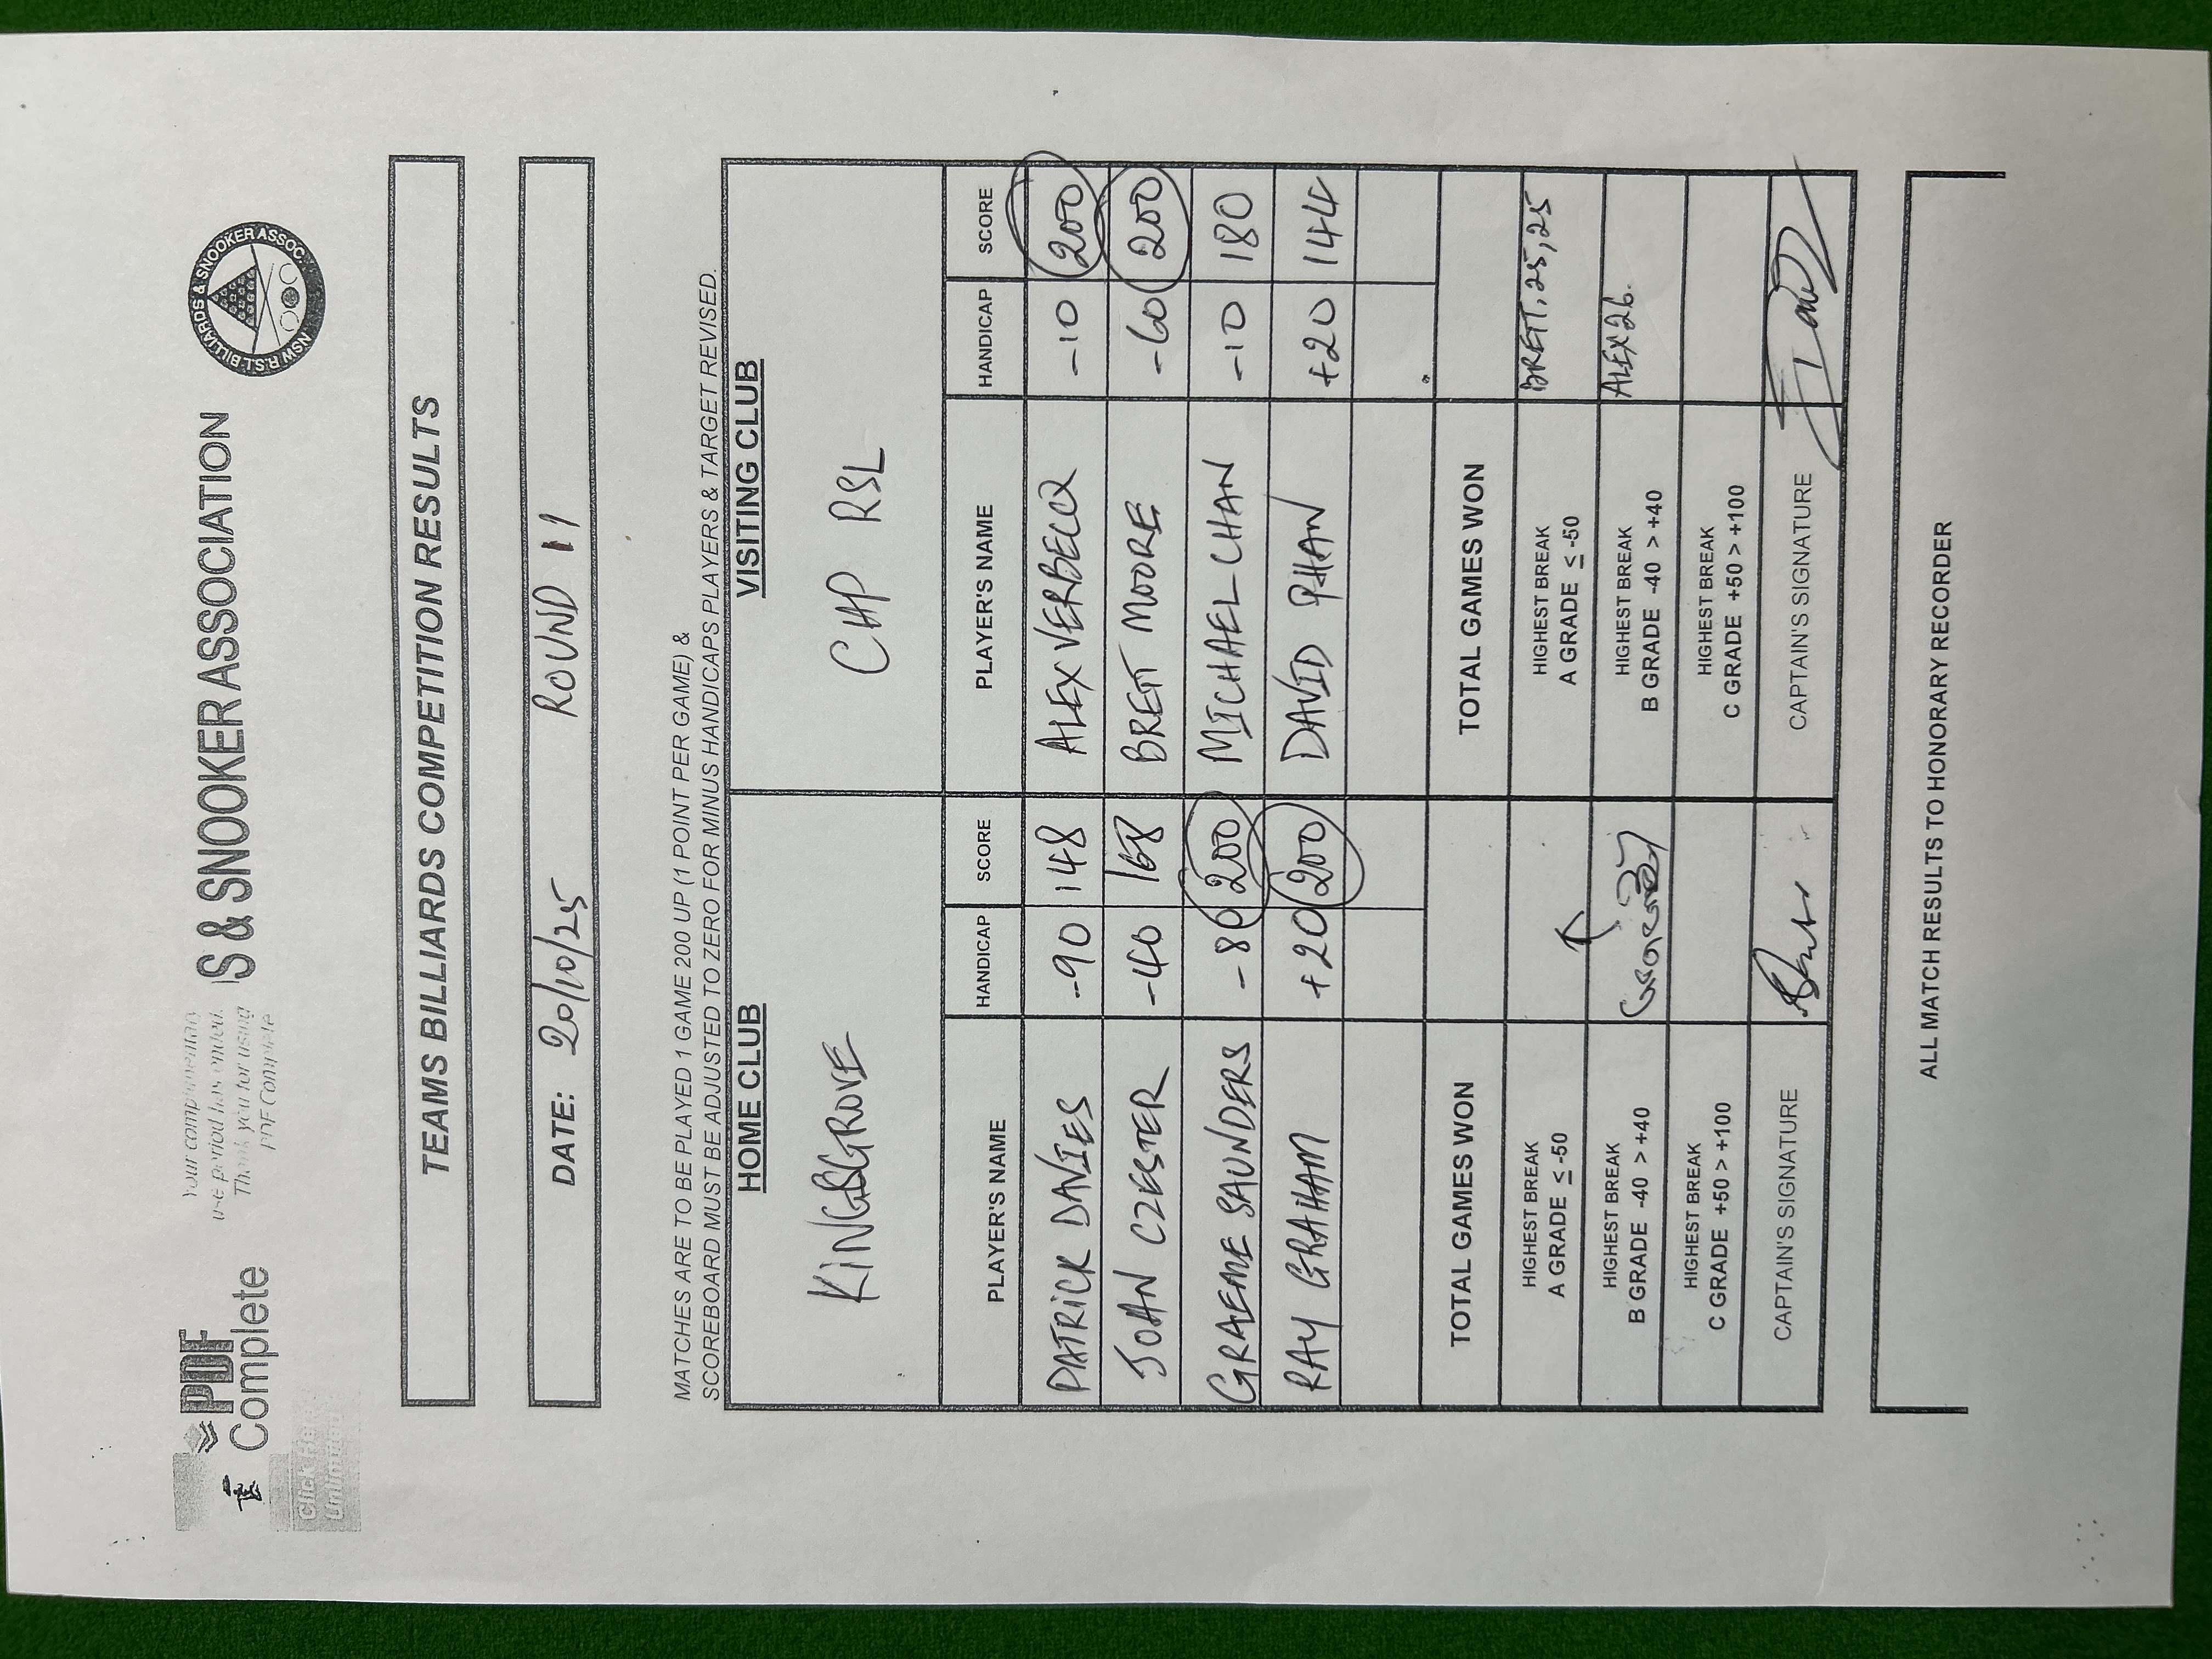 Your complimentary
use period has ended.
Thank you for using
PDF Complete
PDF
Complete
Click He
Unlim
S & SNOOKER ASSOCIATION
NSW R.S.L BILLIARDS & SNOOKER ASSOC.
TEAMS BILLIARDS COMPETITION RESULTS
DATE: 20/10/25 ROUND 11
MATCHES ARE TO BE PLAYED 1 GAME 200 UP (1 POINT PER GAME) &
SCOREBOARD MUST BE ADJUSTED TO ZERO FOR MINUS HANDICAPS PLAYERS & TARGET REVISED.
HOME CLUB VISITING CLUB
KINGSGROVE CHP RSL
PLAYER'S NAME HANDICAP SCORE PLAYER'S NAME HANDICAP SCORE
PATRICK DAVIES -90 148 ALEX VERBECQ -10 200
JOHN CZESTER -40 168 BRETT MOORE -60 200
GRAEME SAUNDERS -80 200 MICHAEL CHAN -10 180
RAY GRAHAM +20 200 DAVID PHAN +20 144
TOTAL GAMES WON TOTAL GAMES WON
HIGHEST BREAK HIGHEST BREAK
A GRADE ≤ -50 A GRADE ≤ -50 BRETT, 25, 25
HIGHEST BREAK HIGHEST BREAK
B GRADE -40 > +40 B GRADE -40 > +40 ALEX 26.
HIGHEST BREAK HIGHEST BREAK
C GRADE +50 > +100 C GRADE +50 > +100
CAPTAIN'S SIGNATURE CAPTAIN'S SIGNATURE
ALL MATCH RESULTS TO HONORARY RECORDER